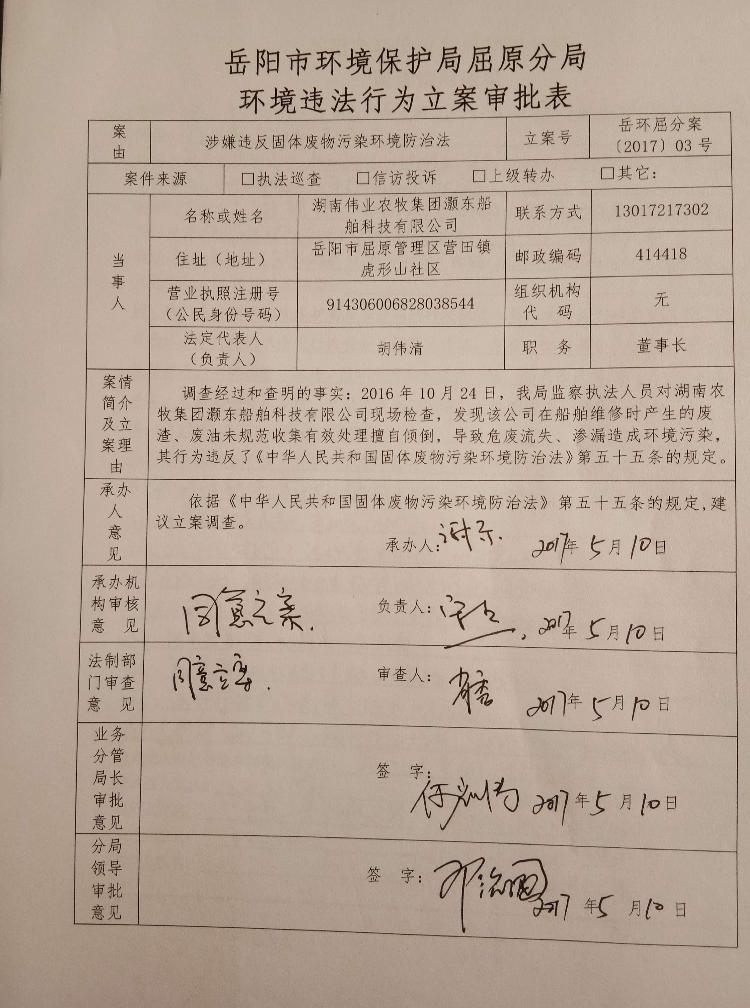 岳阳市环境保护局屈原分局
环境违法行为立案审批表
案由
涉嫌违反固体废物污染环境防治法
立案号
岳环屈分案
〔2017〕03 号
案件来源
□执法巡查 □信访投诉 □上级转办 □其它：
当事人
名称或姓名
湖南伟业农牧集团灏东船
舶科技有限公司
联系方式
13017217302
住址（地址）
岳阳市屈原管理区营田镇
虎形山社区
邮政编码
414418
营业执照注册号
（公民身份号码）
914306006828038544
组织机构
代 码
无
法定代表人
（负责人）
胡伟清
职 务
董事长
案情
简介
及立
案理
由
调查经过和查明的事实：2016 年 10 月 24 日，我局监察执法人员对湖南农
牧集团灏东船舶科技有限公司现场检查，发现该公司在船舶维修时产生的废
渣、废油未规范收集有效处理擅自倾倒，导致危废流失、渗漏造成环境污染，
其行为违反了《中华人民共和国固体废物污染环境防治法》第五十五条的规定。
承办
人
意
见
依据《中华人民共和国固体废物污染环境防治法》第五十五条的规定，建
议立案调查。
承办人： 2017年 5 月 10 日
承办机
构审核
意 见
同意立案.
负责人： 2017年 5 月 10 日
法制部
门审查
意 见
同意立案.
审查人： 2017年 5 月 10 日
业务
分管
局长
审批
意见
签 字： 2017 年 5 月 10 日
分局
领导
审批
意见
签 字： 邓治国 2017 年 5 月 10 日